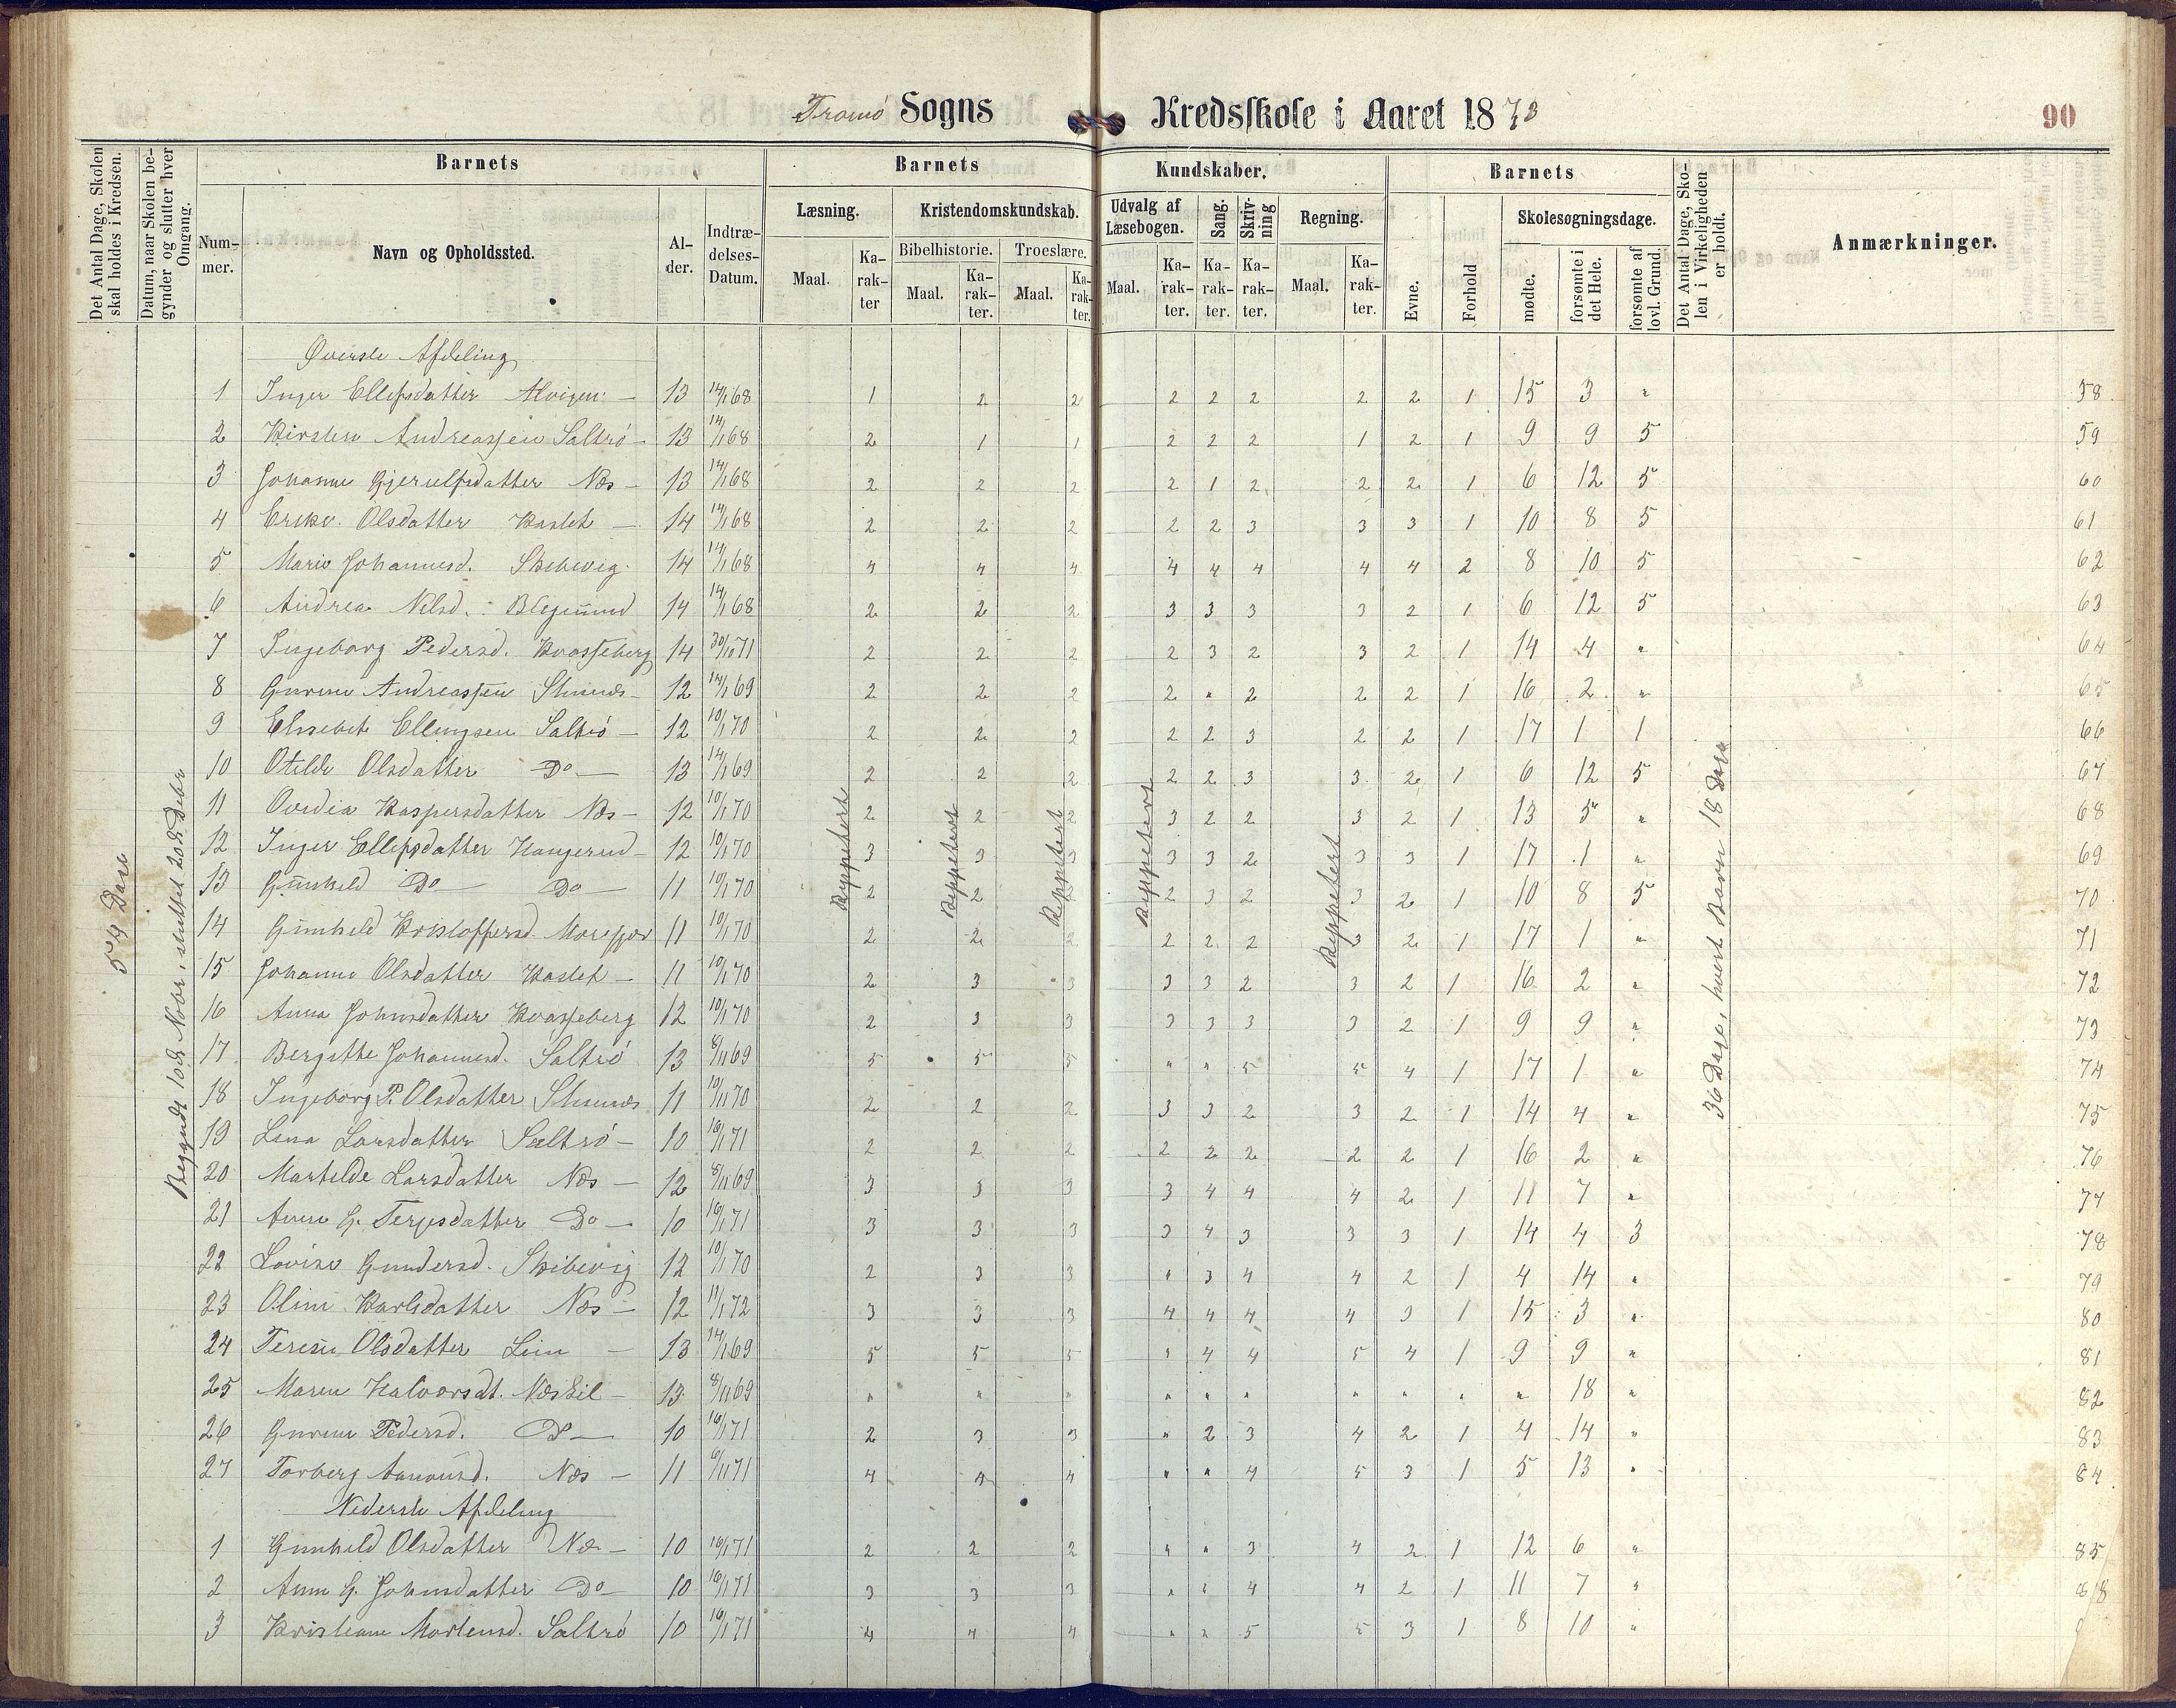 Tromö Sogns Kredsskole i Aaret 1873
90
Det Antal Dage, Skolen skal holdes i Kredsen.
Datum, naar Skolen begynder og slutter hver Omgang.
Barnets
Nummer.
Navn og Opholdssted.
Alder.
Indtrædelses-Datum.
Barnets Kundskaber.
Læsning.
Maal.
Karakter
Kristendomskundskab.
Bibelhistorie.
Maal.
Karakter.
Troeslære.
Maal.
Karakter.
Udvalg af Læsebogen.
Maal.
Karakter.
Sang.
Karakter.
Skrivning
Karakter.
Regning.
Maal.
Karakter.
Barnets
Evne.
Forhold
Skolesøgningsdage.
mødte.
forsømte i det Hele.
forsømte af lovl. Grund.
Det Antal Dage, Skolen i Virkeligheden er holdt.
Anmærkninger.
54 Dage
Begyndt 10de Novbr, sluttet 20de Debr
Reppetert
Reppetert
Reppetert
Reppetert
Reppetert
36 Dage, hvert Barn 18 Dage
Øverste Afdeling
1 Inger Ellefsdatter Alvigen - 13 14/1 68 1 2 2 2 2 2 2 2 1 15 3 " 58
2 Kirsten Andreassen Saltrö - 13 14/1 68 2 1 1 2 2 2 1 2 1 9 9 5 59
3 Johanne Gjerulfsdatter Næs - 13 14/1 68 2 2 2 2 1 2 2 2 1 6 12 5 60
4 Olsdatter Hastet - 14 14/1 68 2 2 2 2 2 3 3 3 1 10 8 5 61
5 Marie Johannesd. Skibevig 14 14/1 68 4 4 4 4 4 4 4 4 2 8 10 5 62
6 Andrea Nilsd. 14 14/1 68 2 2 2 3 3 3 3 2 1 6 12 5 63
7 Ingeborg Pedersd. Kvasseberg 14 30/10 71 2 2 2 2 3 2 3 2 1 14 4 " 64
8 Gurine Andreassen 12 14/1 69 2 2 2 2 " 2 2 2 1 16 2 " 65
9 Elisebet Ellingsen Saltrö - 12 10/1 70 2 2 2 2 2 3 2 2 1 17 1 1 66
10 Otilde Olsdatter Do - 13 14/1 69 2 2 2 2 2 3 3 2 1 6 12 5 67
11 Ovedia Kaspersdatter Næs - 12 10/1 70 2 2 2 3 2 2 3 2 1 13 5 " 68
12 Inger Ellefsdatter Hangerud - 12 10/1 70 3 3 3 3 3 2 3 3 1 17 1 " 69
13 Gunhild Do - Do - 11 10/1 70 2 2 2 2 3 2 3 2 1 10 8 5 70
14 Gunhild Kristoffersd. 11 10/1 70 2 2 2 2 2 2 3 2 1 17 1 " 71
15 Johanne Olsdatter Hastet - 11 10/1 70 2 3 3 3 3 2 3 2 1 16 2 " 72
16 Anna Johnsdatter Kvasseberg 12 10/1 70 2 3 3 3 3 3 3 2 1 9 9 " 73
17 Bergitte Johannesd. Saltrö 13 8/11 69 5 5 5 " " 5 5 4 1 17 1 " 74
18 Ingeborg P. Olsdatter 11 10/11 70 2 2 2 3 3 2 3 2 1 14 4 " 75
19 Lena Larsdatter Saltrö - 10 16/1 71 2 2 2 2 2 2 2 2 1 16 2 " 76
20 Martilde Larsdatter Næs - 12 8/11 69 3 3 3 3 4 4 4 2 1 11 7 " 77
21 Anne G. Terjesdatter Do - 10 16/1 71 3 3 3 3 4 3 3 3 1 14 4 3 78
22 Lovise Gundersd. Skibevig 12 10/1 70 2 3 3 " 3 4 4 2 1 4 14 " 79
23 Oline Karlsdatter Næs - 12 11/1 72 3 3 3 4 4 4 4 3 1 15 3 " 80
24 Terese Olsdatter Lien - 13 14/1 69 5 5 5 " 4 4 5 4 1 9 9 " 81
25 Maren Halvorsdt. Næskil - 13 8/11 69 " " " " " " " " " " 18 " 82
26 Gurine Pedersd. Do - 10 16/1 71 2 3 3 " 2 3 4 2 1 4 14 " 83
27 Torberg Aanonsd. Næs - 11 6/11 71 4 4 4 " " 4 5 3 1 5 13 " 84
Nederste Afdeling
1 Gunhild Olsdatter Næs - 10 16/1 71 2 2 2 " " 3 4 2 1 12 6 " 85
2 Anne G. Johnsdatter Do - 10 16/1 71 3 3 3 " " 4 4 2 1 11 7 "
3 Kristiane Mortensd. Saltrö 10 16/1 71 4 4 4 " " 5 5 3 1 8 10 "